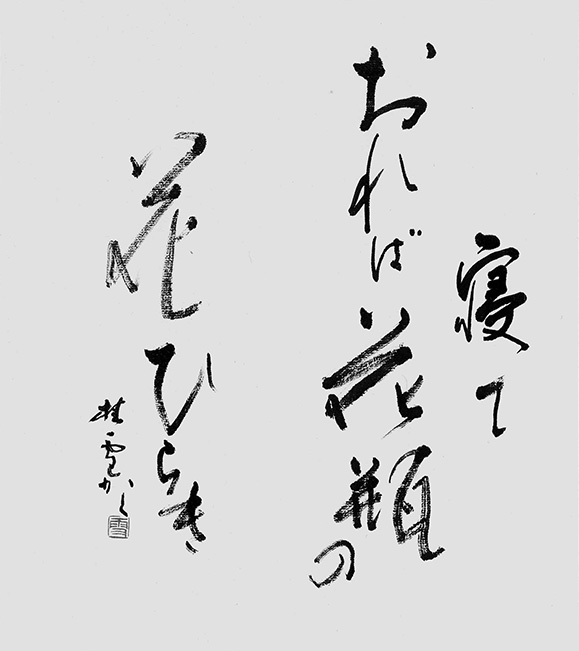 寝て
おれば花瓶の
花ひらき
桂雪かく
雪